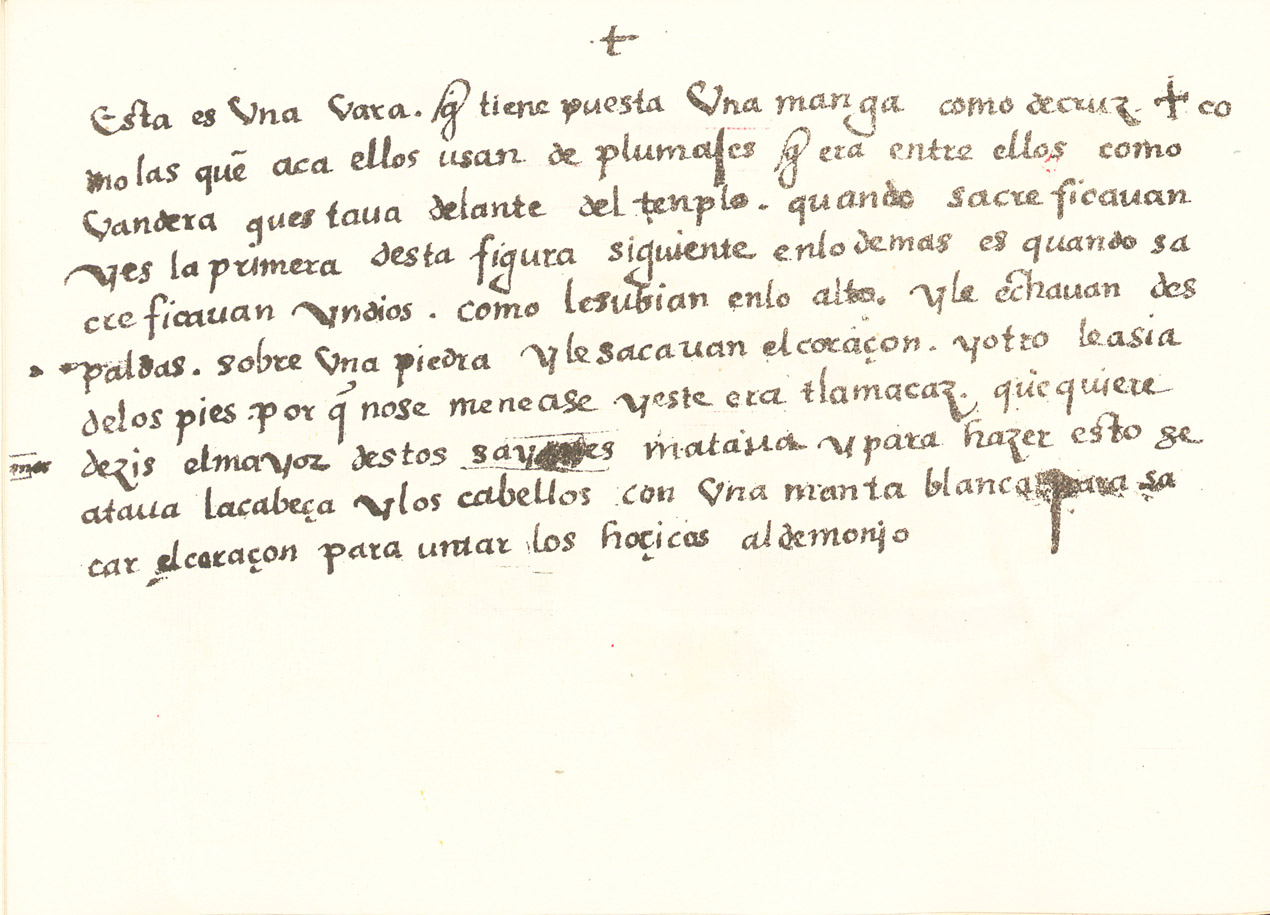 +
Esta es Vna Vara. q̃ tiene puesta Vna manga como de cruz. + co
mo las quẽ aca ellos usan de plumajes q̃ era entre ellos como
Vandera questaua delante del tenplo. quando sacreficauan
yes la primera desta figura siguiente enlo demas es quando sa
creficauan yndios. como lesubian enlo alto. yle echauan des
paldas. sobre Vna piedra yle sacauan el coraçon. yotro le asia
delos pies por q̃ nose menease yeste era tlamacaz. que quiere
dezis elmayoz destos mataua ypara hazer esto se
ataua lacabeça ylos cabellos con Vna manta blanca para sa
car elcoraçon para untar los hoçicos aldemonjo